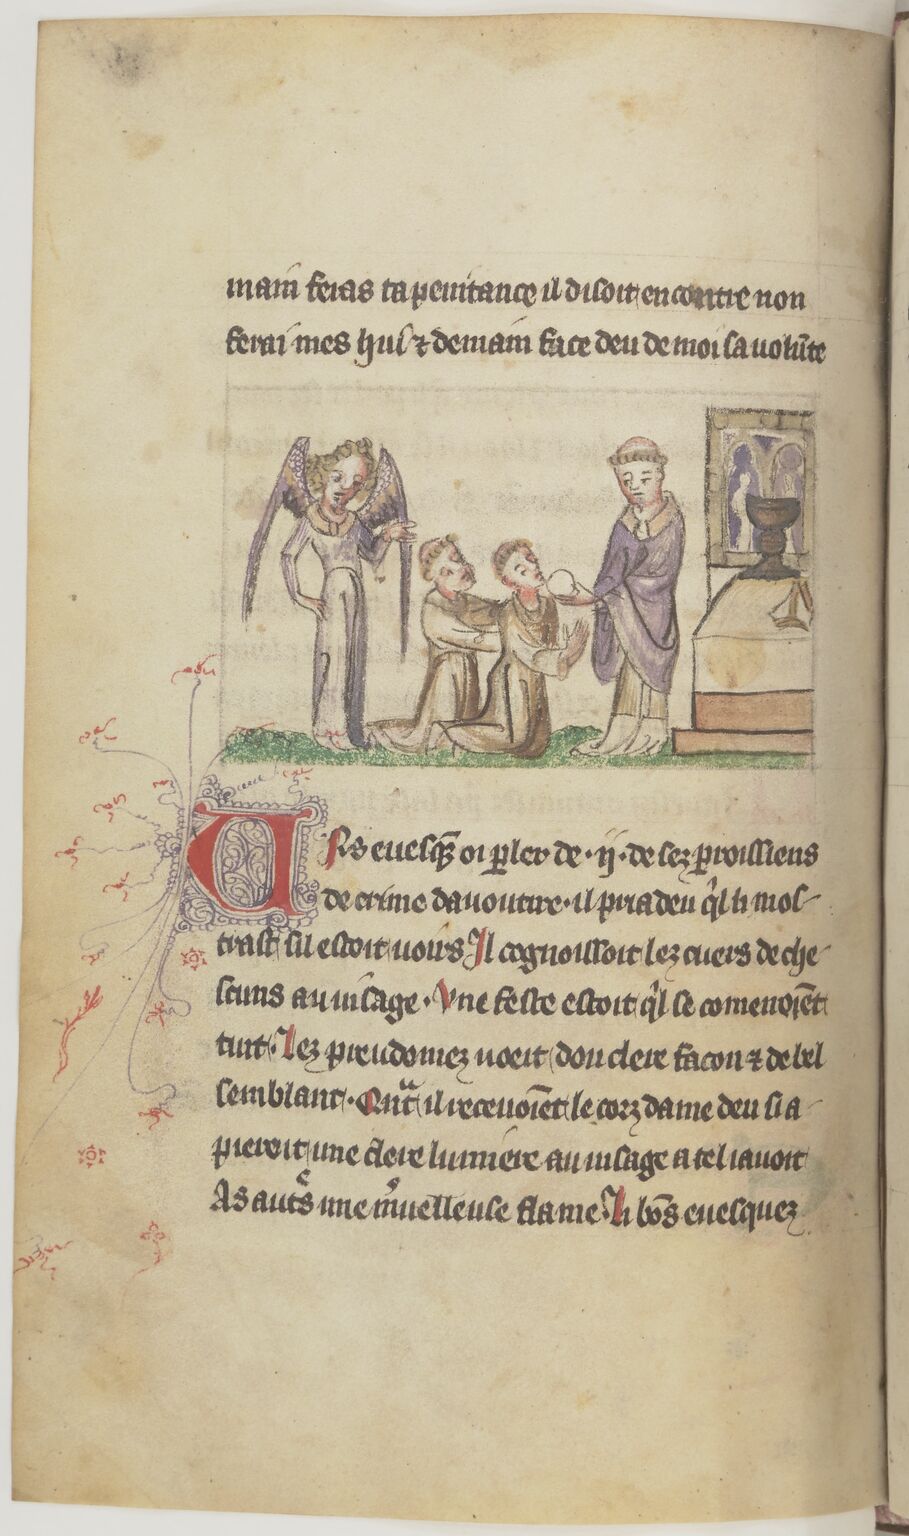 main feras ta penitance il disoit encontre non
ferai mes hui ⁊ demain face deu de moi sa volūte
Uns evesq̄ oi ꝑler de .ij. de sez ꝑroissiens
de crime davoutire. il pria deu q̉l li mos-
trast sil estoit voirs Il cognoissoit lez cuers de che-
scuns au visage. Une feste estoit q̉l se comenoiēt
tuit. Lez preudomez veeit dou clere facon ⁊ de bel
semblant. Qnͣt il recevoiēt le corz dame deu si a-
pieroit une clere lumiere au visage a tel iavoit
As autͤs une mͥvelleuse flame. Li bōs evesquez